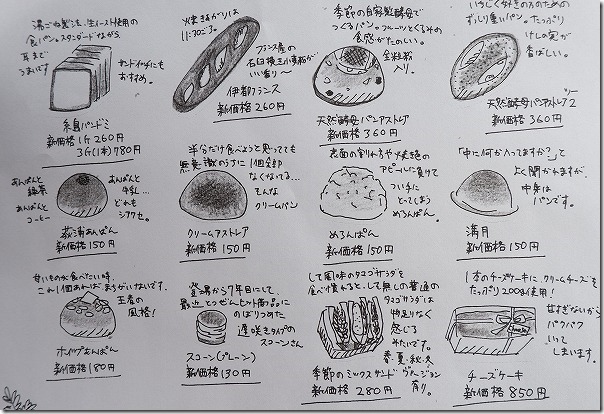 湯ごね製法、生イースト使用の
食パン。スタンダードながら、
耳まで
うまいです
サンドイッチにも
おすすめ。
糸島パンドミ
新価格 1斤 260円
3斤(1本) 780円
焼きあがりは
11:30ごろ。
フランス産の
石臼挽き小麦粉が
いい香り〜
伊都フランス
新価格 260円
季節の自家製酵母で
つくるパン。フルーツとくるみの
食感がたのしい。
全粒粉
入り。
天然酵母パンアストレア
新価格 360円
いちじく好きの方のための
ずっしり重いパン。たっぷり
けしの実が
香ばしい。
天然酵母パンアストレア2
新価格 360円
あんぱんと
緑茶
あんぱんと
コーヒー
あんぱんと
牛乳…
どれも
シアワセ。
荻浦あんぱん
新価格 150円
半分だけ食べようと思っても
無意識のうちに1個全部
なくなってる…
そんな
クリームパン
クリームアストレア
新価格 150円
表面の割れ方や焼色の
アピールに負けて
つい手に
とってしまう
めろんぱん。
めろんぱん
新価格 150円
「中に何か入ってますか?」と
よく聞かれますが、
中身は
パンです。
満月
新価格 150円
甘いものが食べたい時、
これ1個あれば まちがいないです。
王者の
風格!
ホイップあんぱん
新価格 180円
登場から7年目にして
最近とつぜんヒット商品に
のぼりつめた
遅咲きタイプの
スコーンさん
スコーン(プレーン)
新価格 130円
して風味のタマゴサラダを
食べ慣れると、して無しの普通の
タマゴサラダは
物足りなく
感じる
みたいです。
春・夏・秋・冬
ヴァージョン
有り。
季節のミックスサンド
新価格 280円
1本のチーズケーキにクリームチーズを
たっぷり200g使用!
甘すぎないから
パクパク
いって
しまいます。
チーズケーキ
新価格 850円